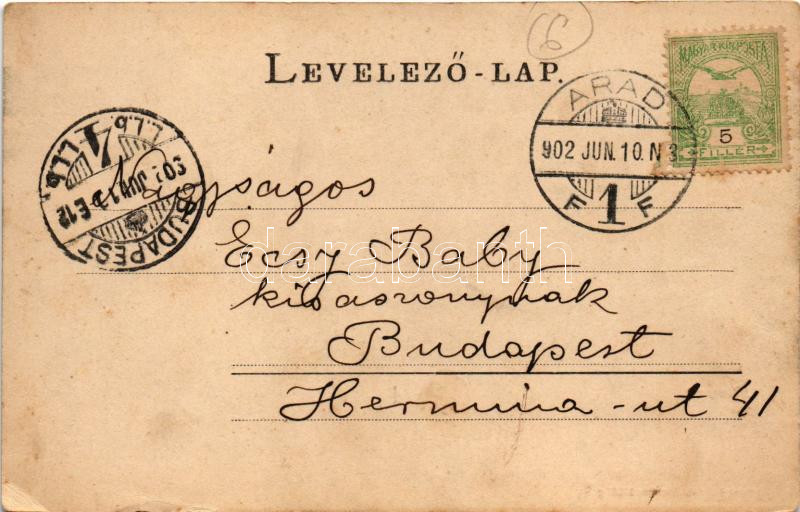 6
LEVELEZŐ-LAP.
MAGYAR KIR. POSTA
5
FILLÉR
ARAD
902 JUN. 10. N 3
F 1 F
BUDAPEST
902 JUN E 12
Nagyságos
Ecsy Baby
kisasszonynak
Budapest
Hermina-ut 41
darabanth